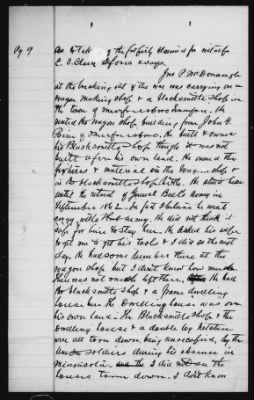 Pg 9
As to taking of the property claimed for witness
C. S. deposes & says.
Jno P. McDonough
at the breaking out of the war was carrying on a
wagon making shop & a blacksmith shop in
the town of Murfreesboro Tennessee. He
rented the wagon shop building from John G.
of Murfreesboro. He built & owned
his Blacksmith Shop though it was not
built upon his own land. He owned the
fixtures & material in the wagon shop &
in the blacksmith shop both. He stood here
until the retreat of General Buell's army in
September 1862. In fact I believe he went
away with that army. He did not think it
safe for him to stay here. He asked his wife
to get me to get his tools & I did so the next
day. He had some lumber there at the
wagon shop but I don't know how much
there was not much left there. He had
his blacksmith shop & a frame dwelling
house here. The Dwelling house was on
his own land. His Blacksmith shop & the
Dwelling house & a double log kitchen
were all torn down, being unoccupied, by the
Union soldiers during his absence in
Minnesota. I did not see the
houses torn down. I don't know